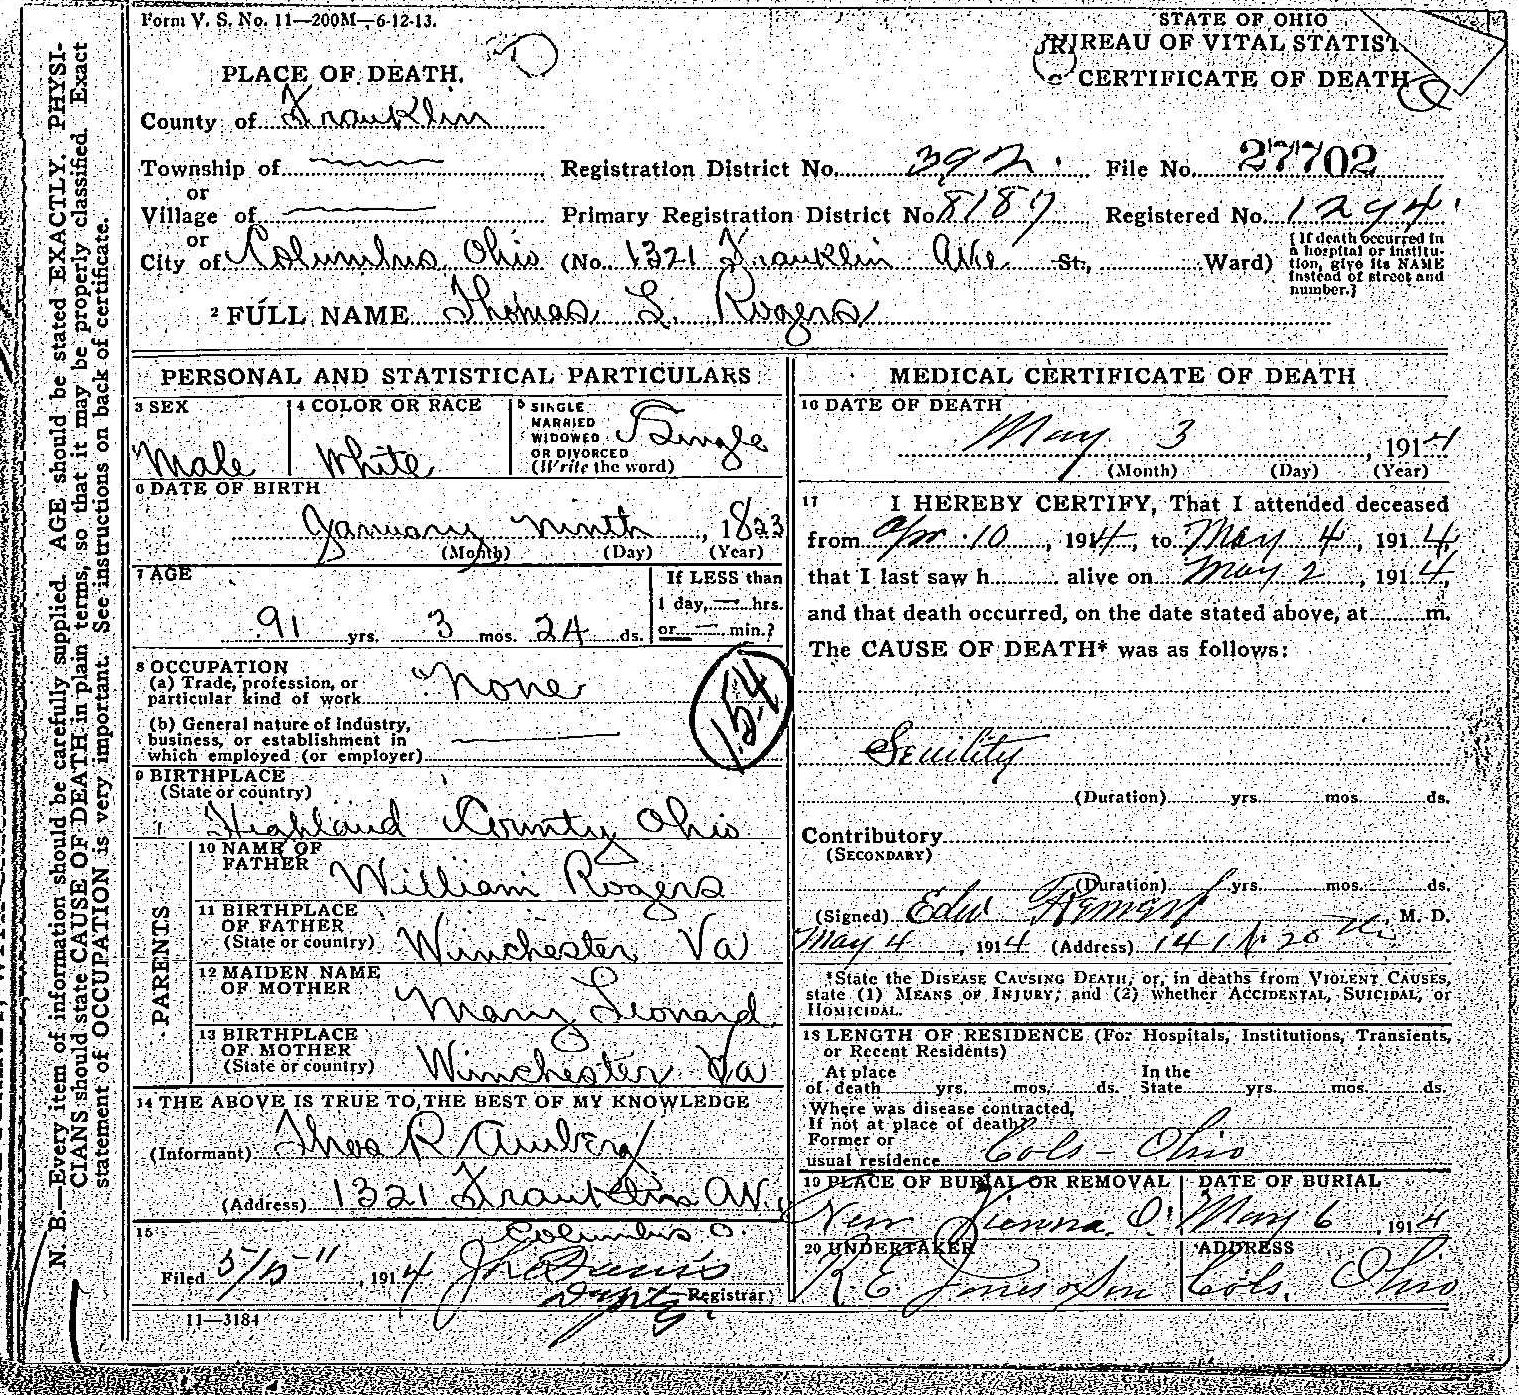 Form V. S. No. 11—200M—6-12-13.
STATE OF OHIO
BUREAU OF VITAL STATIST
CERTIFICATE OF DEATH
PLACE OF DEATH.
County of Franklin
Township of
or
Village of
or
City of Columbus, Ohio (No. 1321 Franklin Ave St., Ward)
Registration District No. 392. File No. 27702
Primary Registration District No. 8187 Registered No. 1294.
{If death occurred in
a hospital or institu-
tion, give its NAME
instead of street and
number.}
2 FULL NAME Thomas L. Rogers
PERSONAL AND STATISTICAL PARTICULARS
3 SEX
Male
4 COLOR OR RACE
White
5 SINGLE
MARRIED
WIDOWED
OR DIVORCED
(Write the word)
Single
6 DATE OF BIRTH
January ninth, 1823
(Month) (Day) (Year)
7 AGE
91 yrs. 3 mos. 24 ds.
If LESS than
1 day, — hrs.
or — min.?
8 OCCUPATION
(a) Trade, profession, or
particular kind of work None
(b) General nature of industry,
business, or establishment in
which employed (or employer)
154
9 BIRTHPLACE
(State or country)
Highland County Ohio
PARENTS
10 NAME OF
FATHER William Rogers
11 BIRTHPLACE
OF FATHER
(State or country) Winchester Va
12 MAIDEN NAME
OF MOTHER Mary Leonard
13 BIRTHPLACE
OF MOTHER
(State or country) Winchester Va
14 THE ABOVE IS TRUE TO THE BEST OF MY KNOWLEDGE
(Informant) Thos R Amberg
(Address) 1321 Franklin Av.
Columbus O.
15
Filed 5/15, 1914
Deputy Registrar
11—3184
MEDICAL CERTIFICATE OF DEATH
16 DATE OF DEATH
May 3, 1914
(Month) (Day) (Year)
17 I HEREBY CERTIFY, That I attended deceased
from Apr. 10, 1914, to May 4, 1914,
that I last saw h alive on May 2, 1914,
and that death occurred, on the date stated above, at m.
The CAUSE OF DEATH* was as follows:
Senility
(Duration) yrs. mos. ds.
Contributory
(SECONDARY)
(Duration) yrs. mos. ds.
(Signed) Edw , M. D.
May 4, 1914 (Address) 141 N. 20 th
*State the DISEASE CAUSING DEATH, or, in deaths from VIOLENT CAUSES,
state (1) MEANS OF INJURY; and (2) whether ACCIDENTAL, SUICIDAL, or
HOMICIDAL.
18 LENGTH OF RESIDENCE (For Hospitals, Institutions, Transients,
or Recent Residents)
At place
of death yrs. mos. ds.
In the
State yrs. mos. ds.
Where was disease contracted,
If not at place of death?
Former or
usual residence Cols - Ohio
19 PLACE OF BURIAL OR REMOVAL
New Vienna. O.
DATE OF BURIAL
May 6 1914
20 UNDERTAKER
E. Jones & Son
ADDRESS
Cols. Ohio
N. B.—Every item of information should be carefully supplied. AGE should be stated EXACTLY. PHYSI-
CIANS should state CAUSE OF DEATH in plain terms, so that it may be properly classified. Exact
statement of OCCUPATION is very important. See instructions on back of certificate.